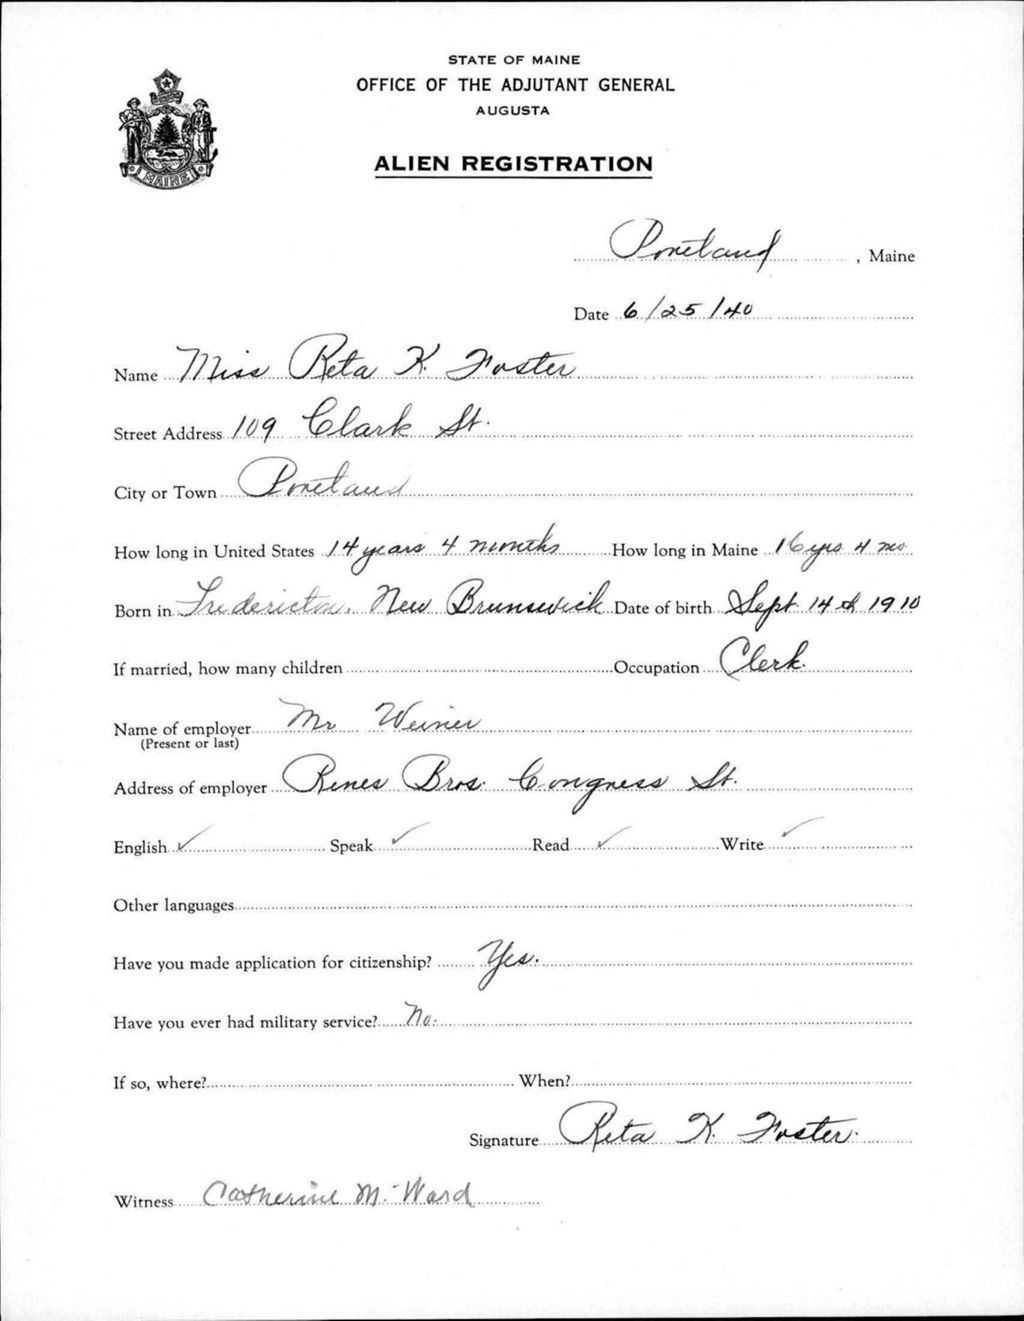 STATE OF MAINE
OFFICE OF THE ADJUTANT GENERAL
AUGUSTA
ALIEN REGISTRATION
MAINE
Portland, Maine
Date 6/25/40
Name Miss Reta K. Foster
Street Address 109 Clark St.
City or Town Portland
How long in United States 14 years 4 months How long in Maine 16 yrs 4 mo
Born in Fredericton, New Brunswick Date of birth Sept. 14th 1910
If married, how many children Occupation Clerk.
Name of employer Mr Weiner
(Present or last)
Address of employer Rines Bros. Congress St.
English ✓ Speak ✓ Read ✓ Write ✓
Other languages
Have you made application for citizenship? Yes.
Have you ever had military service? No.
If so, where? When?
Signature Reta K. Foster.
Witness Catherine M. Ward